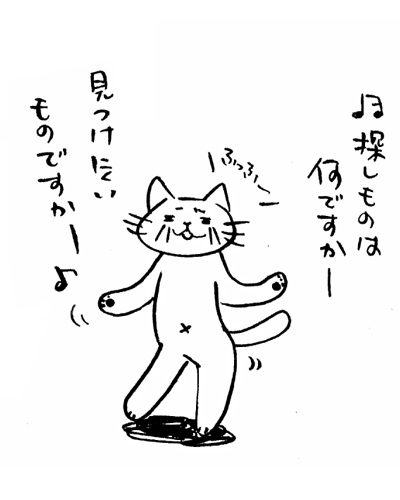 ♪探しものは
何ですかー
ふっふ〜
見つけにくい
ものですかー♪